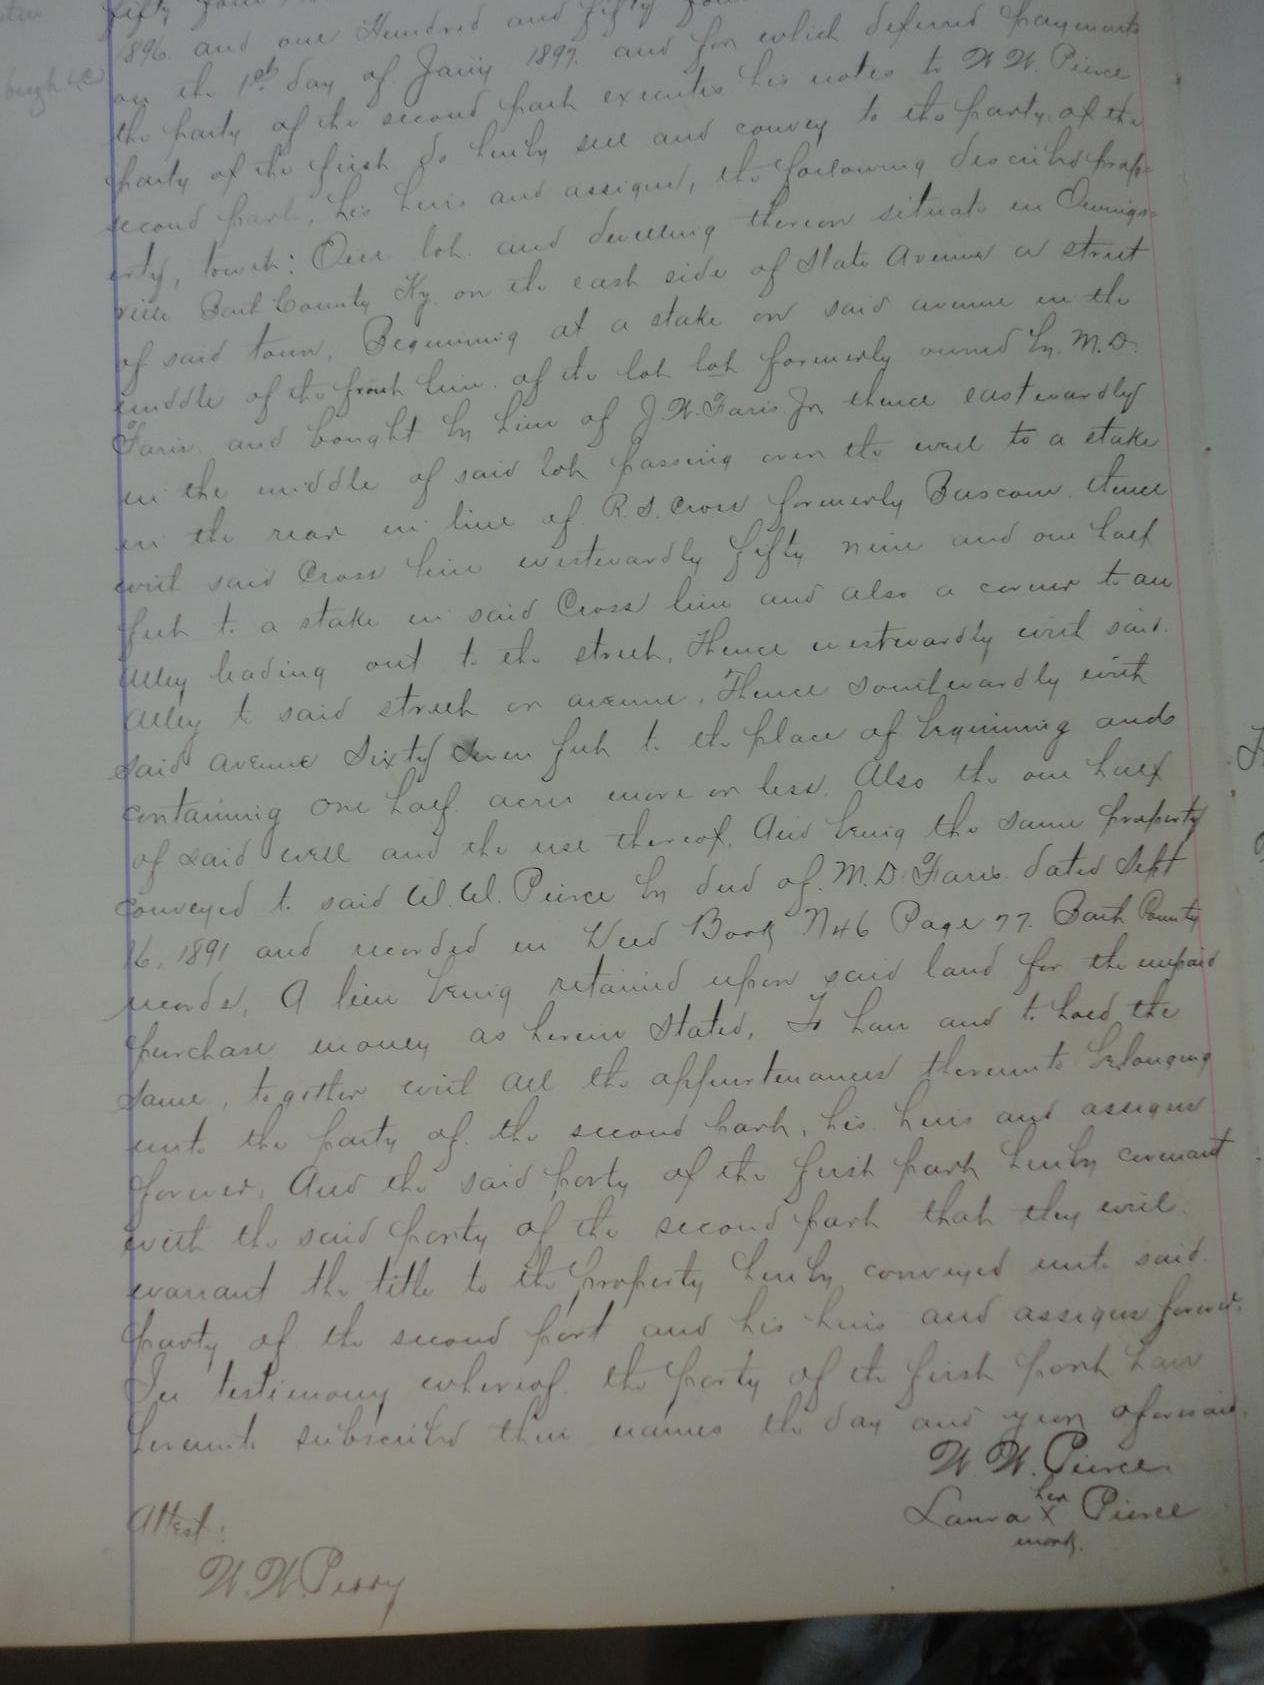 fifty four
1896. and one Hundred and fifty four
on the 1st day of Jany 1897. and for which deferred payments
the party of the second part executes his notes to W. W. Pierce
party of the first do hereby sell and convey to the party of the
second part, his heirs and assigns, the following described prop-
erty, towit: One lot and dwelling thereon situate in Owings-
ville Bath County Ky. on the east side of State Avenue a street
of said town, Beginning at a stake on said avenue in the
middle of the front line of the lot lot formerly owned by M. D.
Faris and bought by him of J. W. Faris Jr thence eastwardly
in the middle of said lot passing over the well to a stake
in the rear in line of R. S. Cross formerly Bascom. thence
with said Cross line westwardly fifty nine and one half
feet to a stake in said Cross line and also a corner to an
alley leading out to the street, Thence westwardly with said
alley to said street or avenue, Thence southwardly with
said avenue sixty seven feet to the place of beginning and
containing one half acres more or less. Also the one half
of said well and the use thereof, And being the same property
conveyed to said W. W. Pierce by deed of M. D. Faris dated Sept
16, 1891 and recorded in Deed Book No 46 Page 77. Bath County
records, A lien being retained upon said land for the unpaid
purchase money as herein stated, To have and to hold the
same, together with all the appurtenances thereunto belonging
unto the party of the second part, his heirs and assigns
forever, And the said party of the first part hereby covenant
with the said party of the second part that they will
warrant the title to the property hereby conveyed unto said
party of the second part and his heirs and assigns forever.
In testimony whereof the party of the first part have
hereunto subscribed their names the day and year aforesaid.
W. W. Pierce
Laura her X mark Pierce
Attest:
W. W. Perry